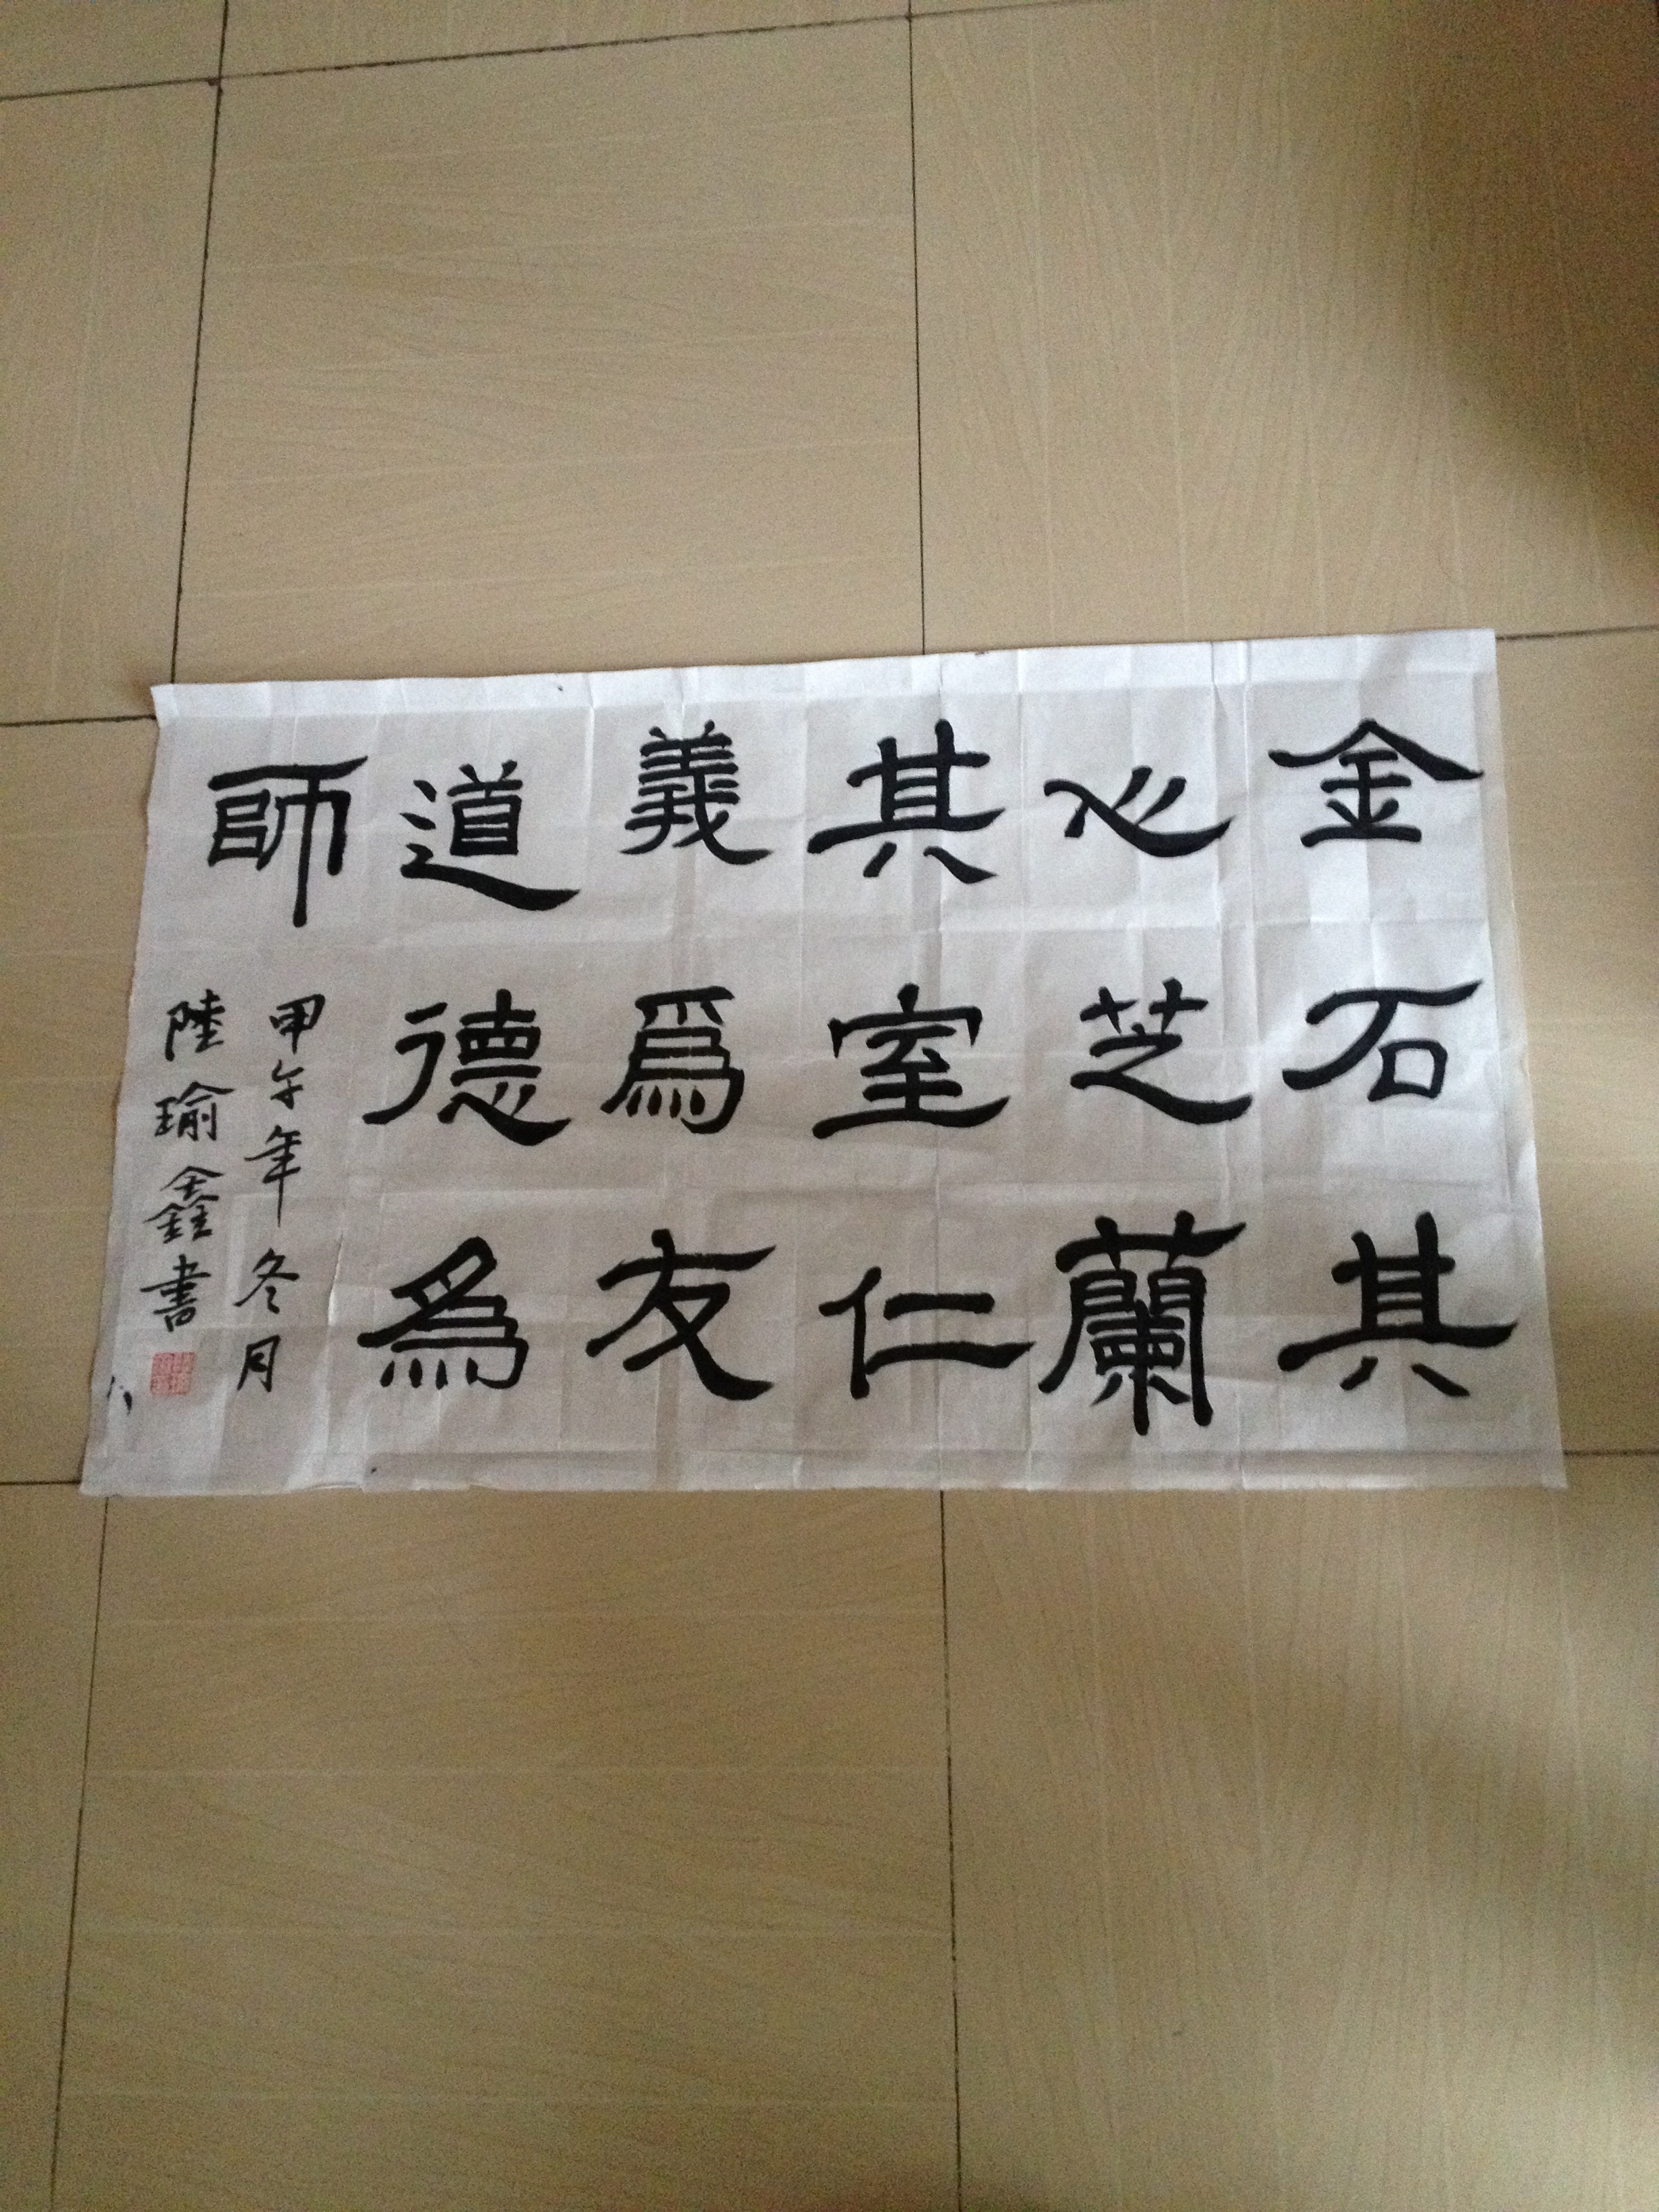 金石其
心芝蘭
其室仁
義爲友
道德為
師
甲午年冬月
陸瑜鑫書